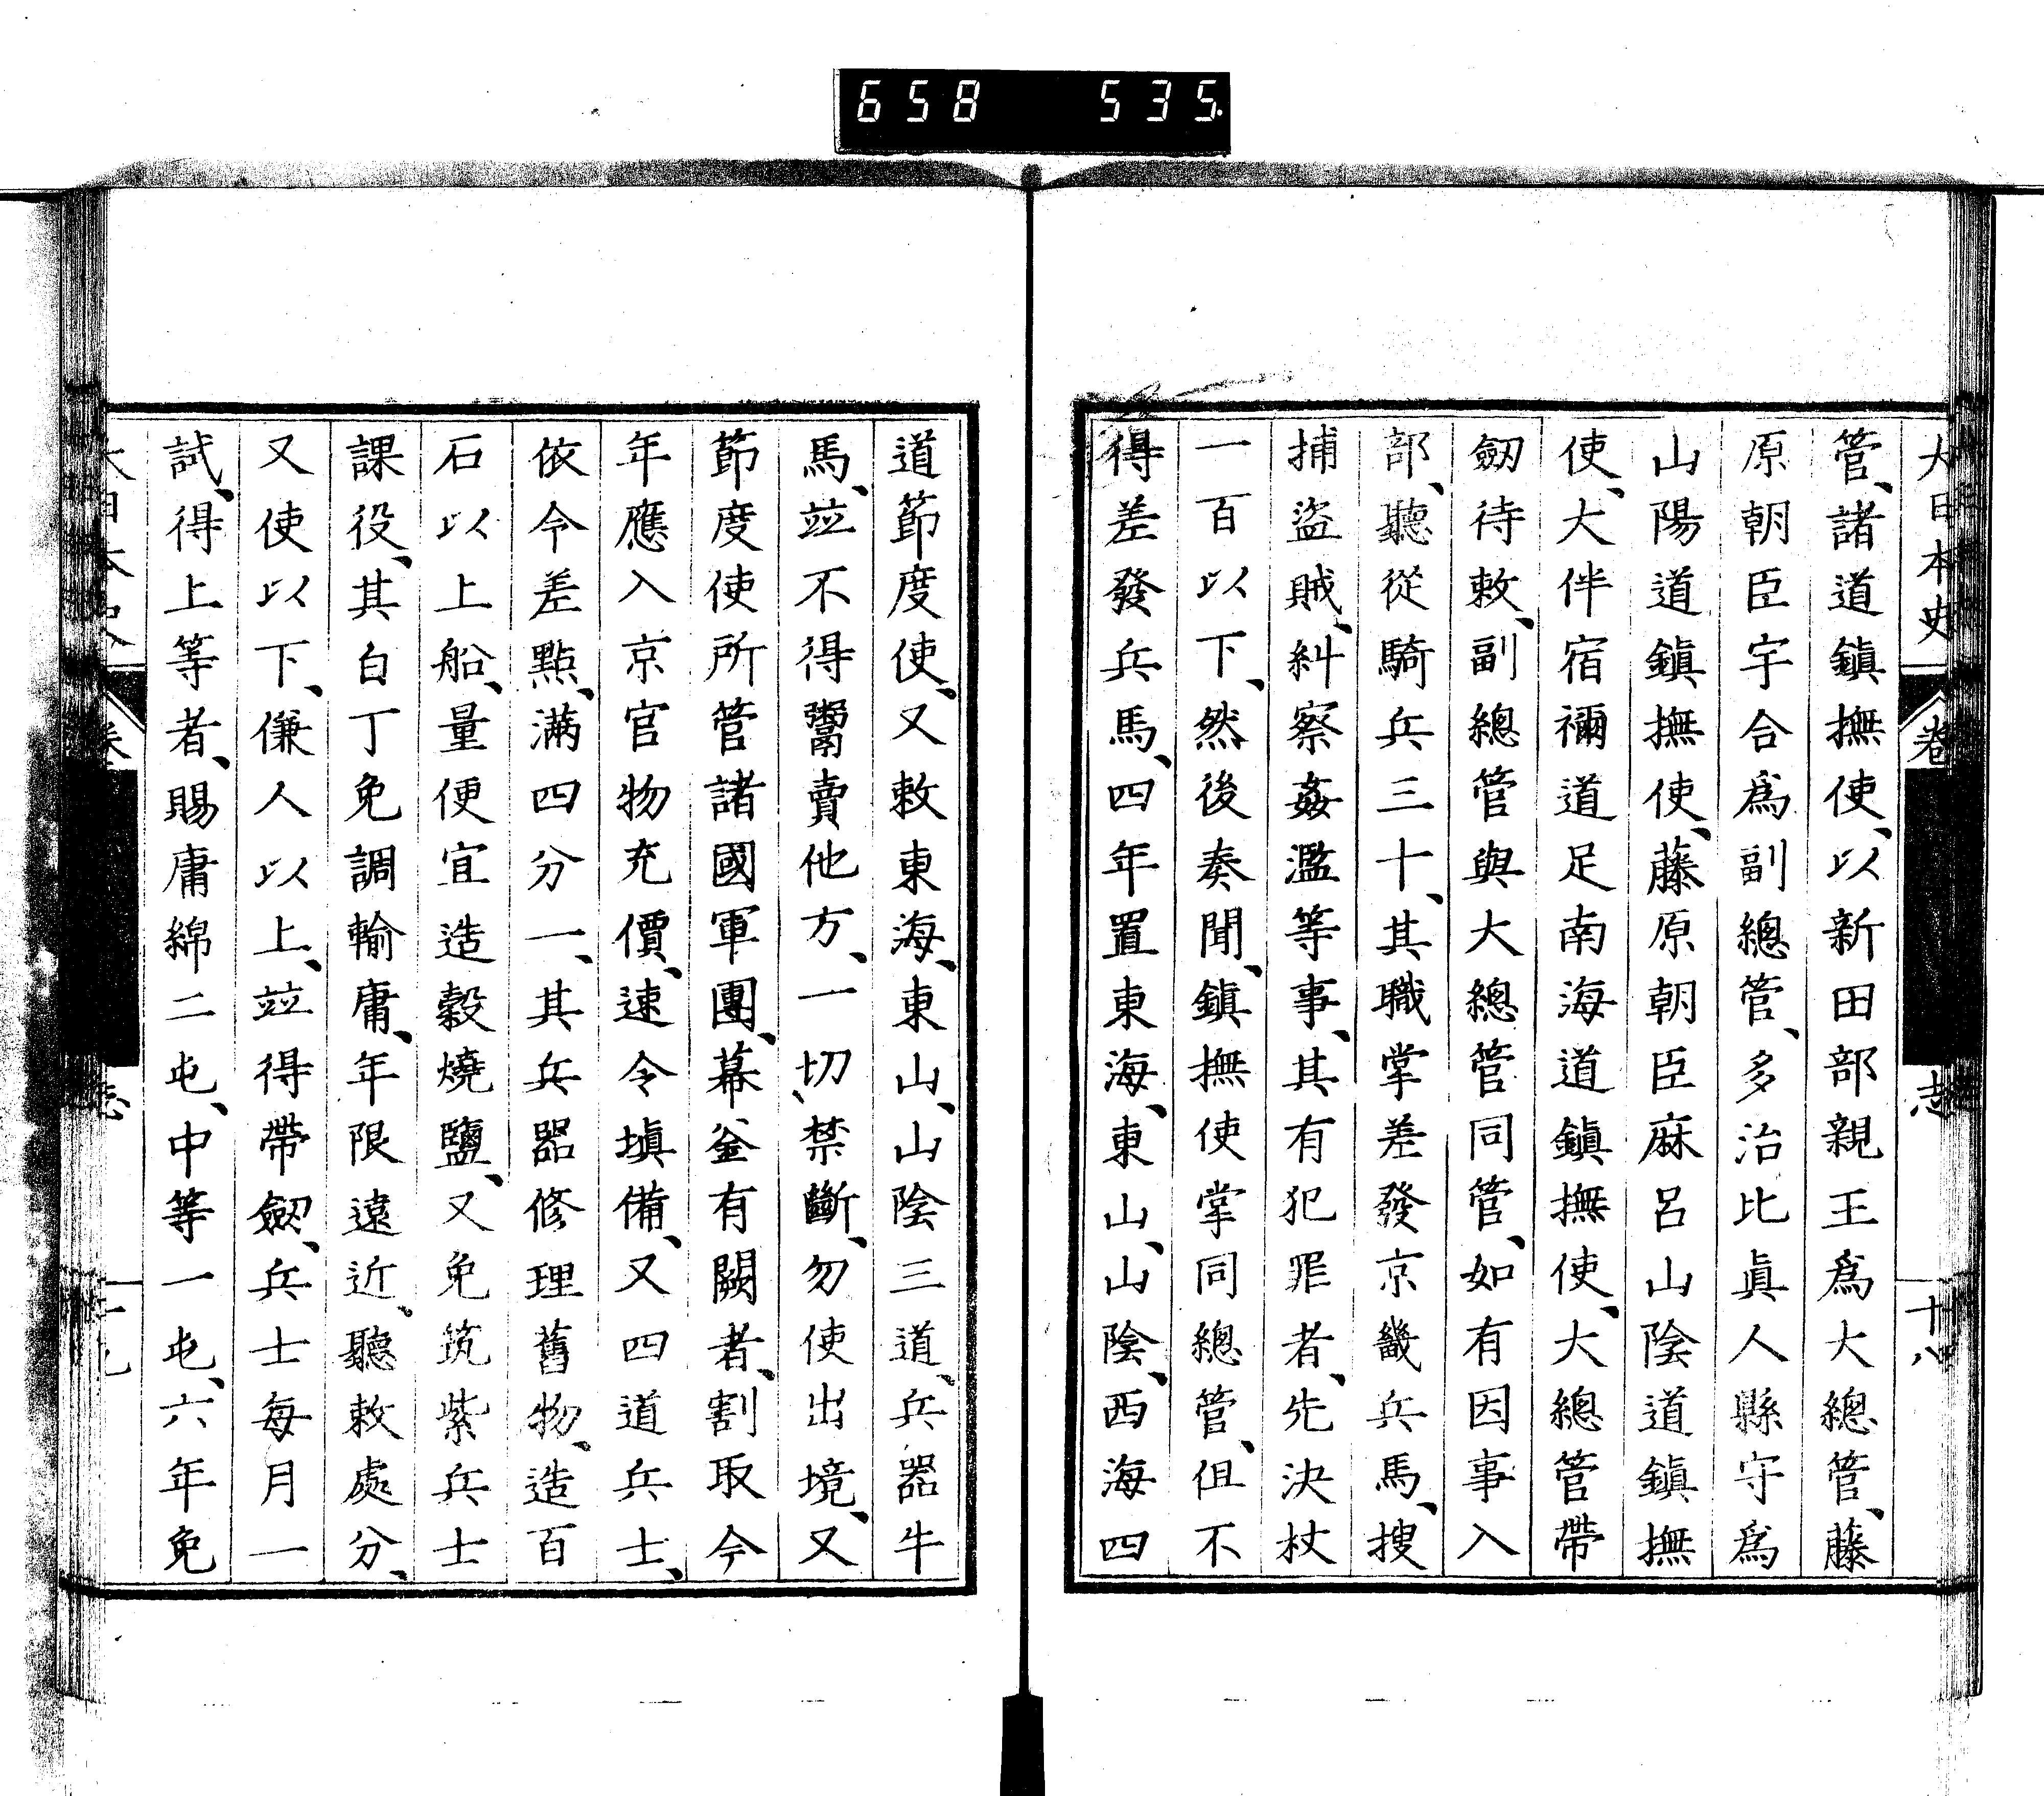 658 535.
大日本史 卷 志 十八
管、諸道鎭撫使、以新田部親王爲大總管、藤
原朝臣宇合爲副總管、多治比眞人縣守爲
山陽道鎭撫使、藤原朝臣麻呂山陰道鎭撫
使、大伴宿禰道足南海道鎭撫使、大總管帶
劔待敕、副總管與大總管同管、如有因事入
部、聽從騎兵三十、其職掌差發京畿兵馬、搜
捕盜賊、糾察姦濫等事、其有犯罪者、先決杖
一百以下、然後奏聞、鎭撫使掌同總管、但不
得差發兵馬、四年置東海、東山、山陰、西海四
道節度使、又敕東海、東山、山陰三道、兵器牛
馬、竝不得鬻賣他方、一切禁斷、勿使出境、又
節度使所管諸國軍團、幕釜有闕者、割取今
年應入京官物充價、速令塡備、又四道兵士、
依令差點、滿四分一、其兵器修理舊物、造百
石以上船、量便宜造穀燒鹽、又免筑紫兵士
課役、其白丁免調輸庸、年限遠近、聽敕處分、
又使以下、傔人以上、竝得帶劔、兵士每月一
試、得上等者、賜庸綿二屯、中等一屯、六年免